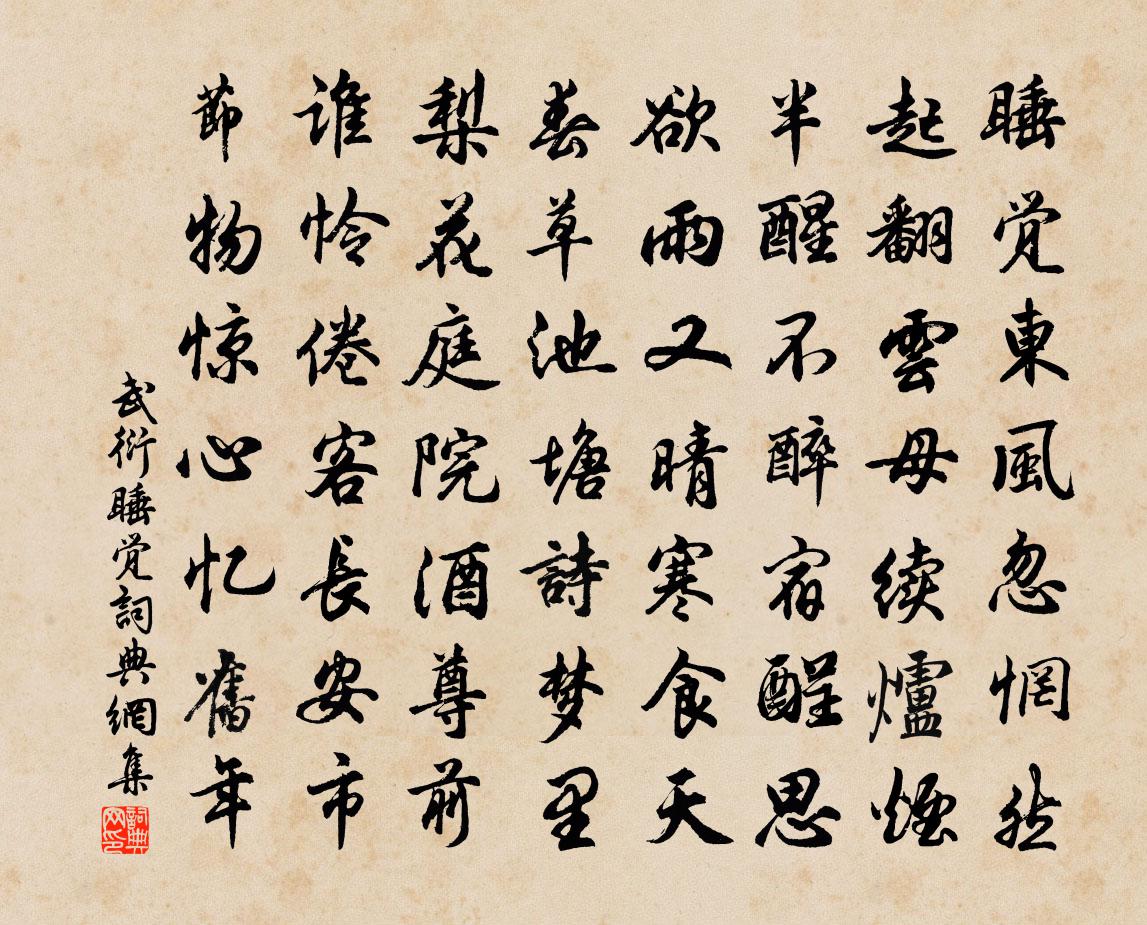 睡觉東風忽惘然
起翻雲母续爐煙
半醒不醉宿酲思
欲雨又晴寒食天
春草池塘詩梦里
梨花庭院酒尊前
谁怜倦客長安市
節物惊心忆舊年
武衍睡觉詞典網集
詞典网印